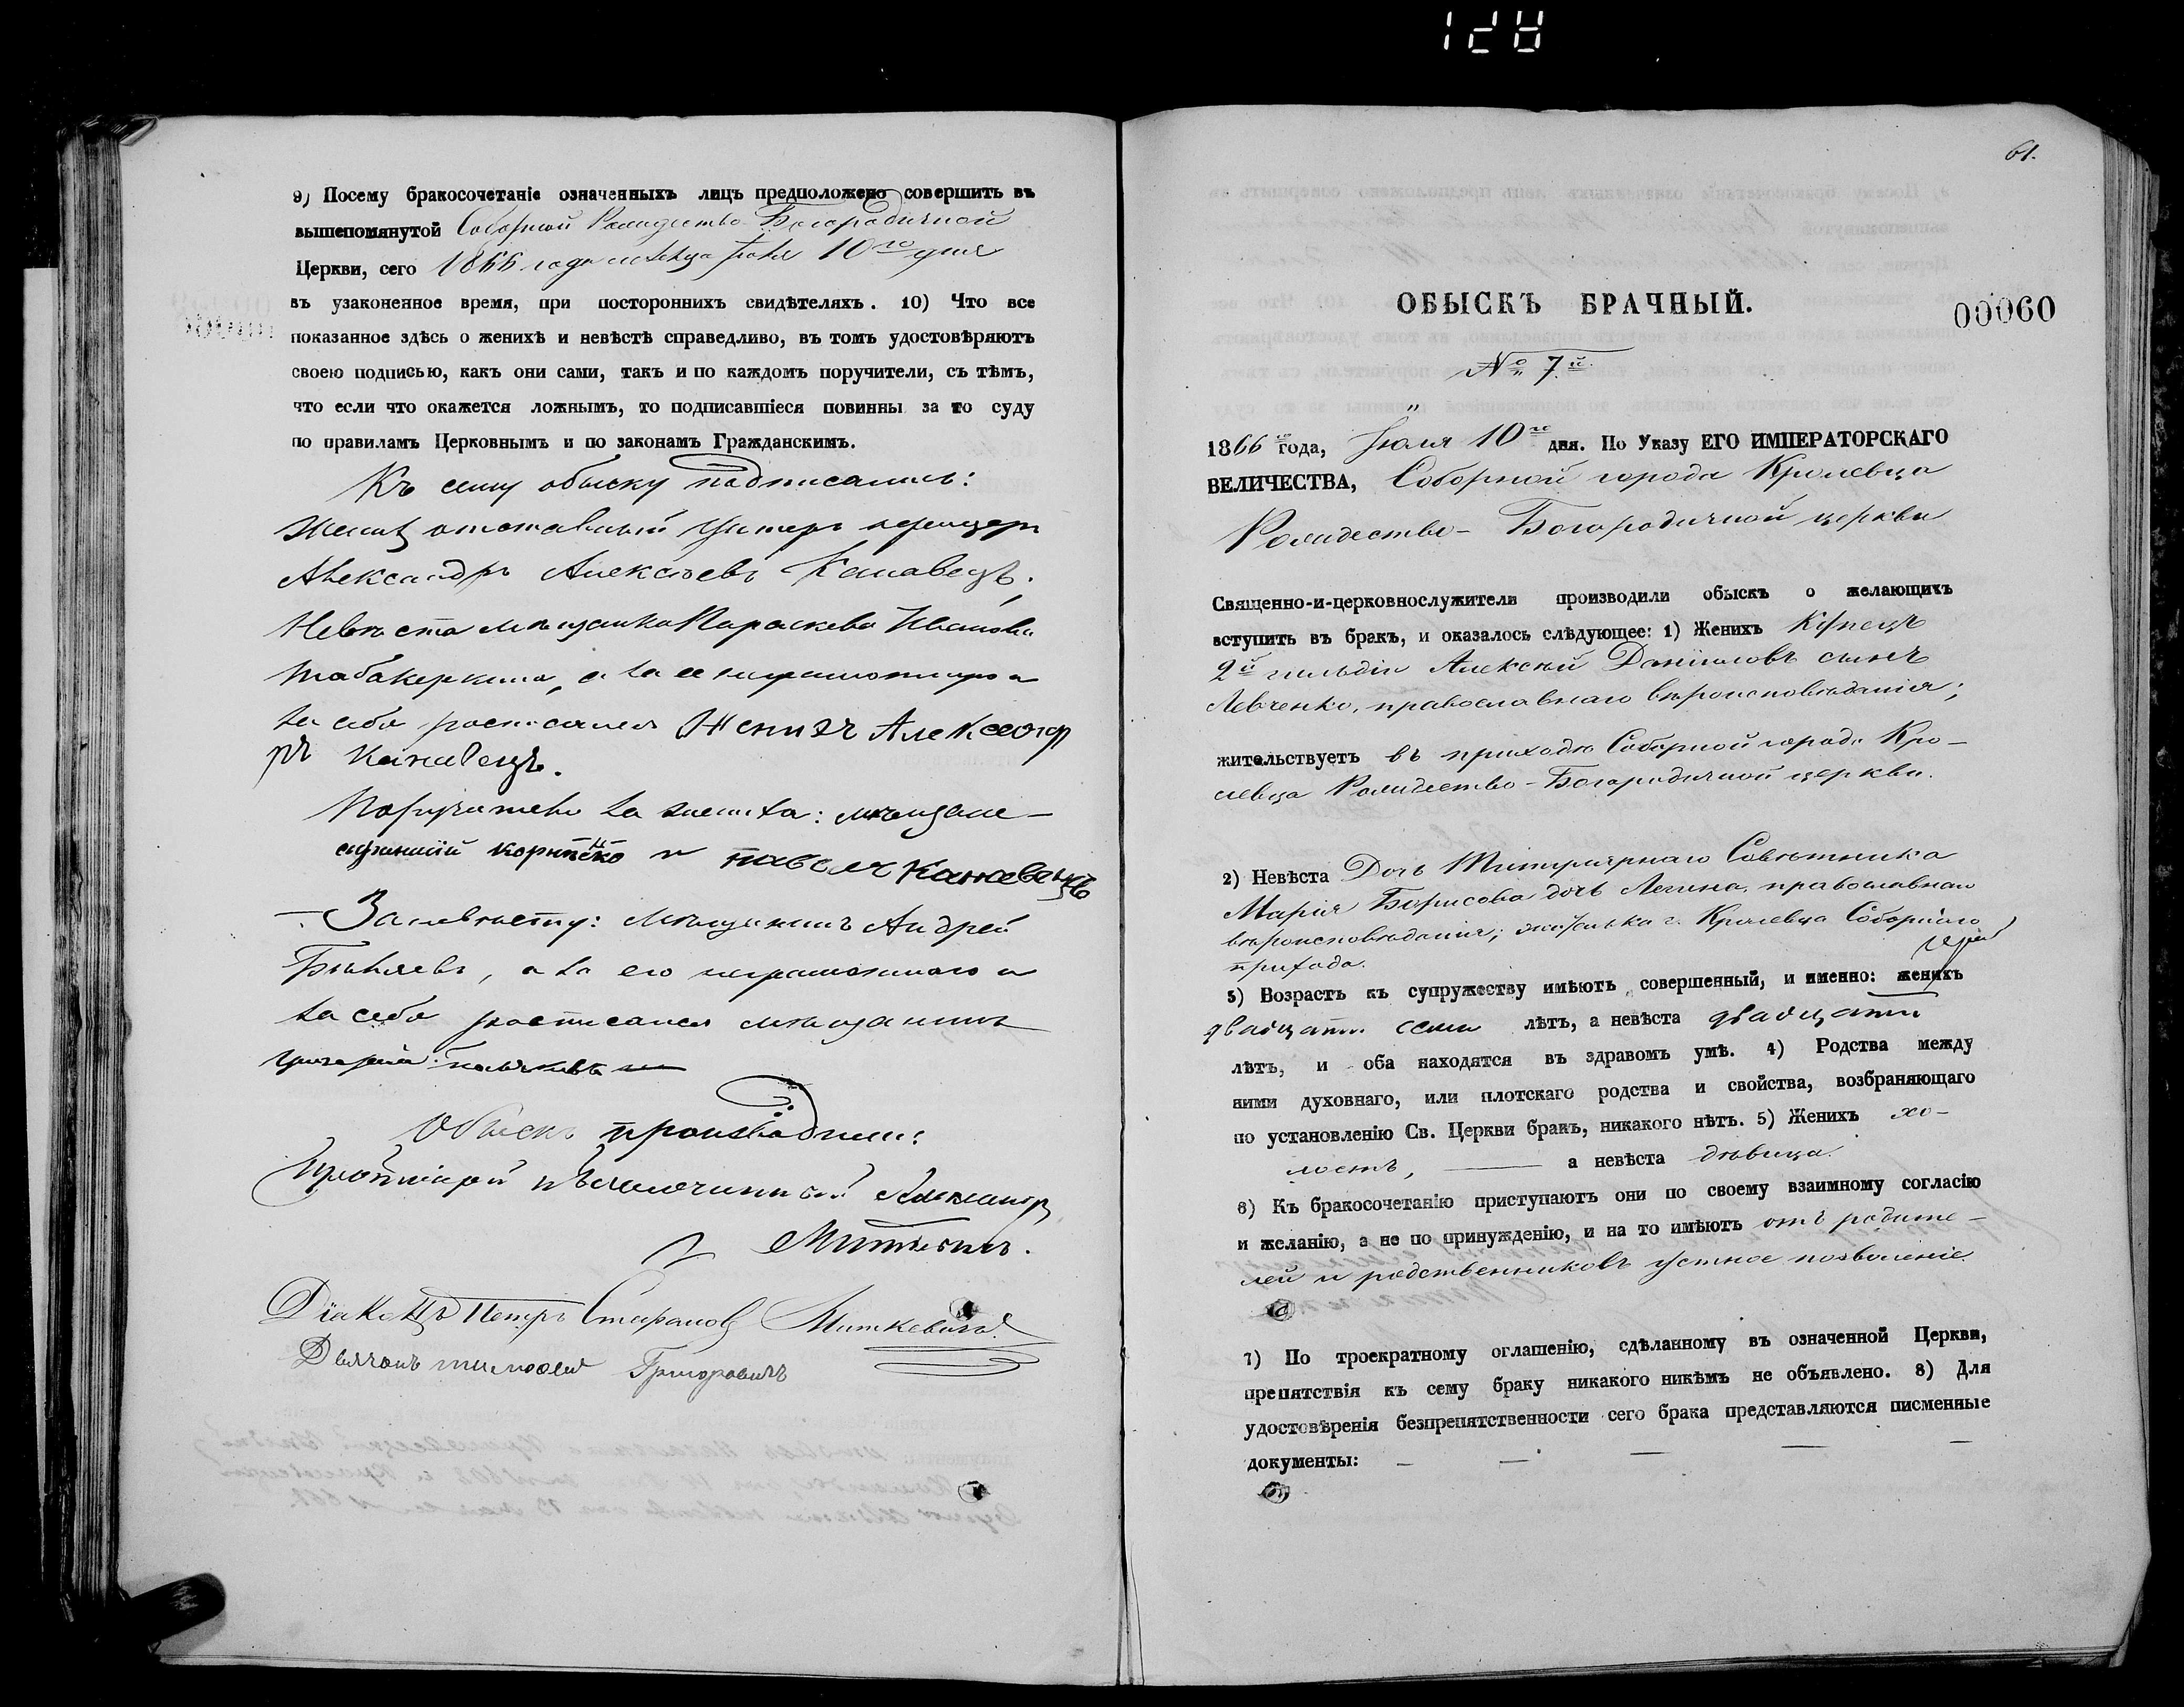 9) Посему бракосочетаніе означенныхъ лицъ предположено совершить въ
вышепомянутой Соборной Рождество-Богородичной
Церкви, сего 1866 года месяца Іюля 10го дня
въ узаконенное время, при постороннихъ свидѣтеляхъ. 10) Что все
показанное здѣсь о женихѣ и невѣстѣ справедливо, въ томъ удостовѣряютъ
своею подписью, какъ они сами, такъ и по каждомъ поручители, съ тѣмъ,
что если что окажется ложнымъ, то подписавшіеся повинны за то суду
по правиламъ Церковнымъ и по законамъ Гражданскимъ.
Къ сему обыску подписались:
Женихъ отставный Унтеръ
Александръ Алексѣевъ Канавецъ.
Невѣста мѣщанка Параскева Иванова
Табакеркина, а за ее неграмотную и
за себя росписался Женихъ Александ
ръ Канавецъ.
Поручители за жениха: мѣщане
и Павелъ Канавецъ
За невѣсту: Мѣщанинъ Андрей
а за его неграмотнаго и
за себя росписался мѣщанинъ
Обыскъ производили:
Протоіерей и Благочинный Александръ
Миткевичъ.
Діаконъ Петръ Стефановъ Миткевичъ.
Дьячокъ Тимофей Григоровичъ
61.
ОБЫСКЪ БРАЧНЫЙ.
00060
№ 7й.
1866го года, Іюля 10го дня. По Указу ЕГО ИМПЕРАТОРСКАГО
ВЕЛИЧЕСТВА, Соборной города Кролевца
Рождество-Богородичной церкви
Священно-и-церковнослужители производили обыскъ о желающихъ
вступить въ бракъ, и оказалось слѣдующее: 1) Женихъ Купецъ
2й гильдіи Алексѣй Даніиловъ сынъ
Левченко, православнаго вѣроисповѣданія;
жительствуетъ въ приходѣ Соборной города Кро-
левца Рождество-Богородичной церкви.
2) Невѣста Дочь Титулярнаго Совѣтника
Марія Борисова дочь православнаго
вѣроисповѣданія; г. Кролевца Соборнаго
прихода.
3) Возрастъ къ супружеству имѣютъ совершенный, и именно: женихъ
двадцати семи лѣтъ, а невѣста двадцати
лѣтъ, и оба находятся въ здравомъ умѣ. 4) Родства между
ними духовнаго, или плотскаго родства и свойства, возбраняющаго
по установленію Св. Церкви бракъ, никакого нѣтъ. 5) Женихъ хо-
лостъ, а невѣста дѣвица.
6) Къ бракосочетанію приступаютъ они по своему взаимному согласію
и желанію, а не по принужденію, и на то имѣютъ отъ родите-
лей и родственниковъ устное позволеніе.
7) По троекратному оглашенію, сдѣланному въ означенной Церкви,
препятствія къ сему браку никакого никѣмъ не объявлено. 8) Для
удостовѣренія безпрепятственности сего брака представляются писменные
документы: — — — — —